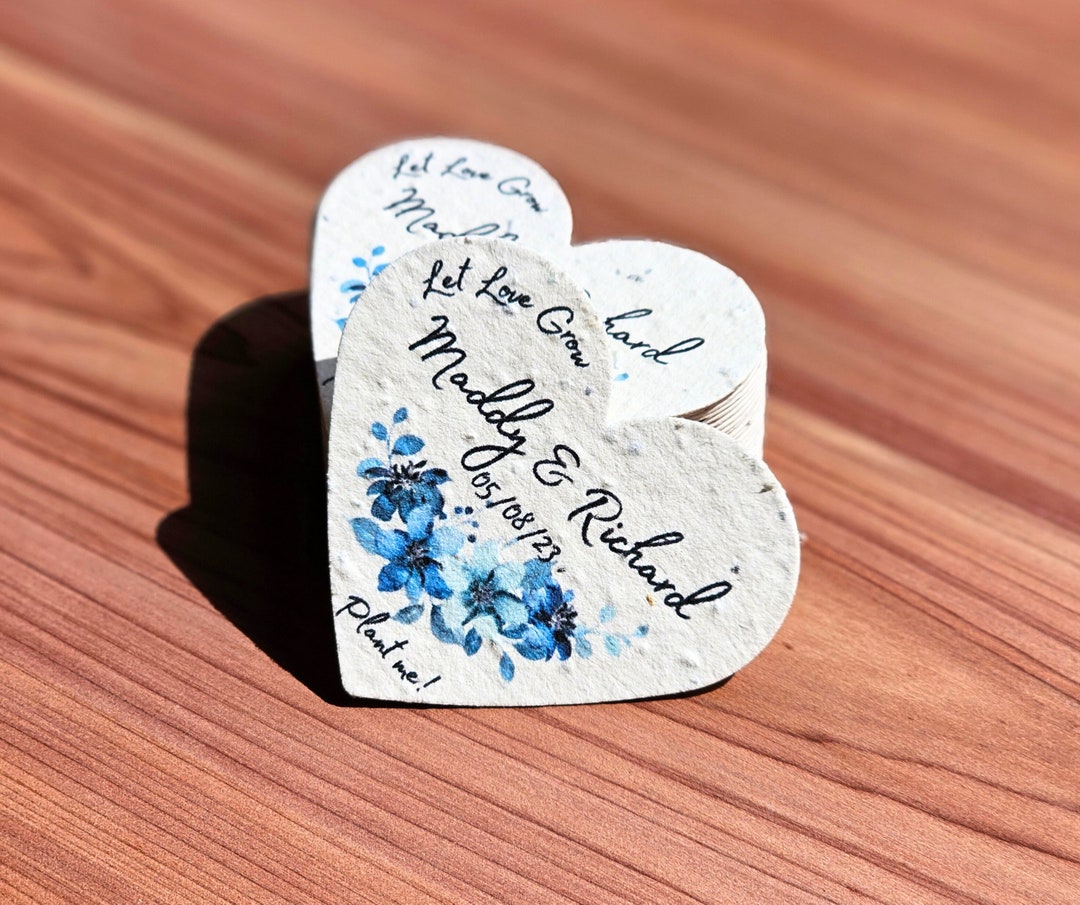 Let Love Grow
hard
Let Love Grow
Maddy & Richard
05/08/23
Plant me!